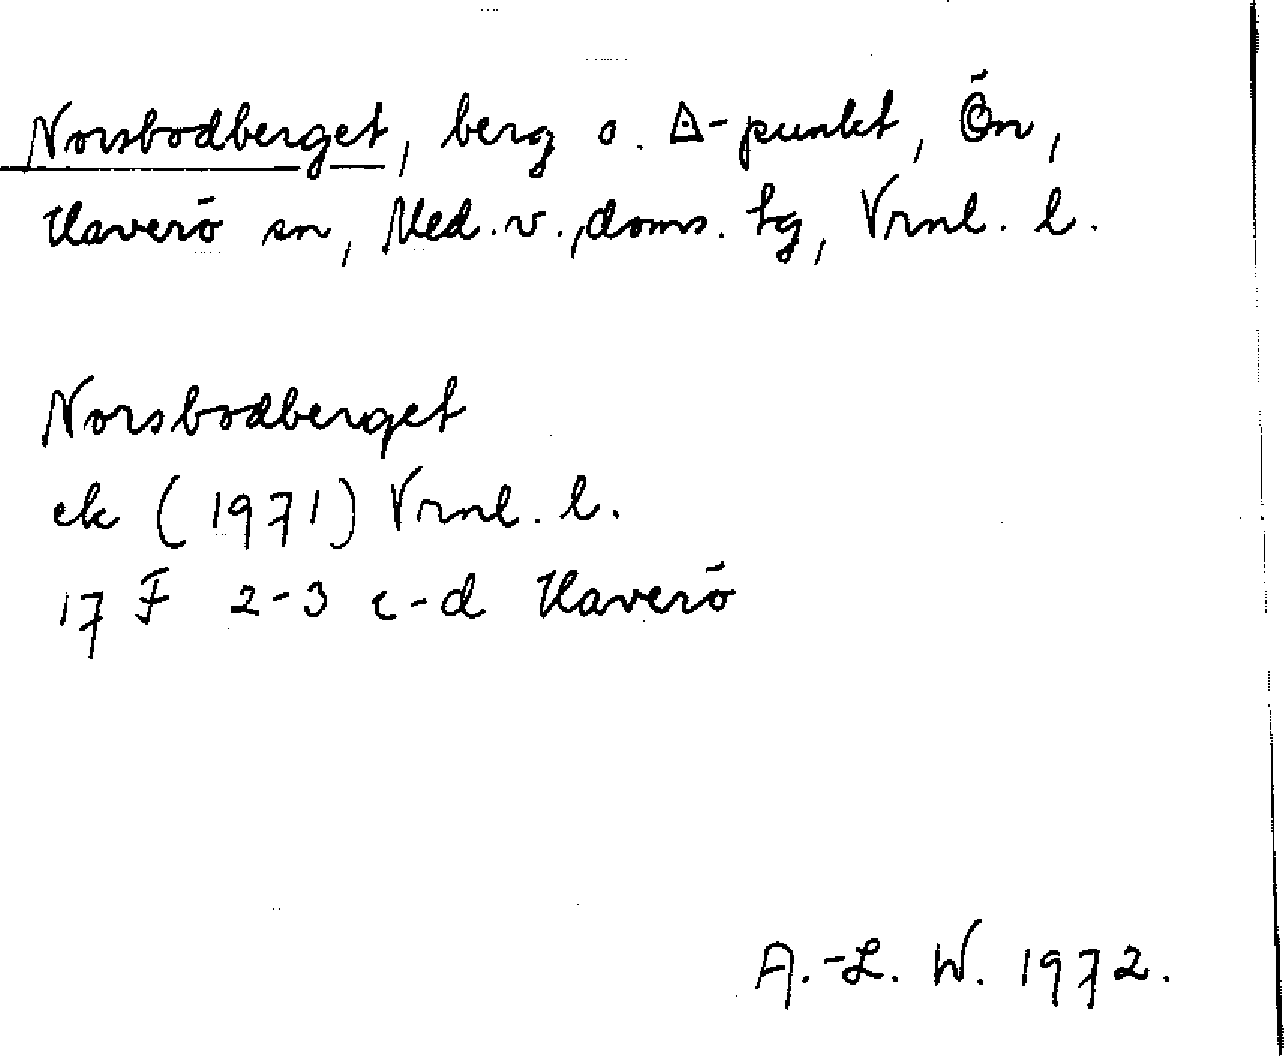 Norsbodberget, berg o. ◬-punkt, Ön,
Haverö sn, Med. v., doms. tg, Vrnl. l.
Norsbodberget
ek (1971) Vrnl. l.
17 F 2-3 c-d Haverö
A.-L. W. 1972.